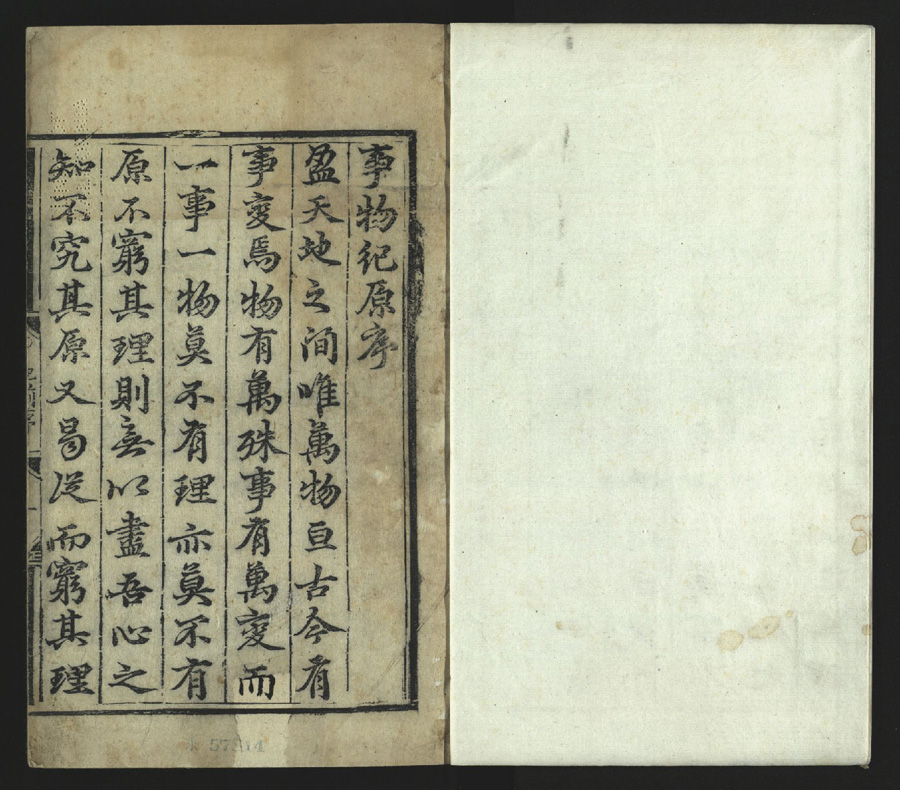 事物紀原序
盈天地之間唯萬物亘古今有
事變焉物有萬殊事有萬變而
一事一物莫不有理亦莫不有
原不窮其理則無以盡吾心之
知不究其原又曷從而窮其理
k 57814